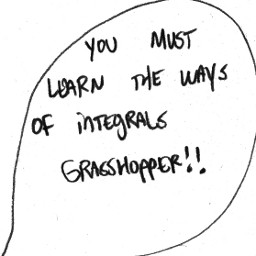 YOU MUST
LEARN THE WAYS
OF iNTEGRALS
GRASSHOPPER!!